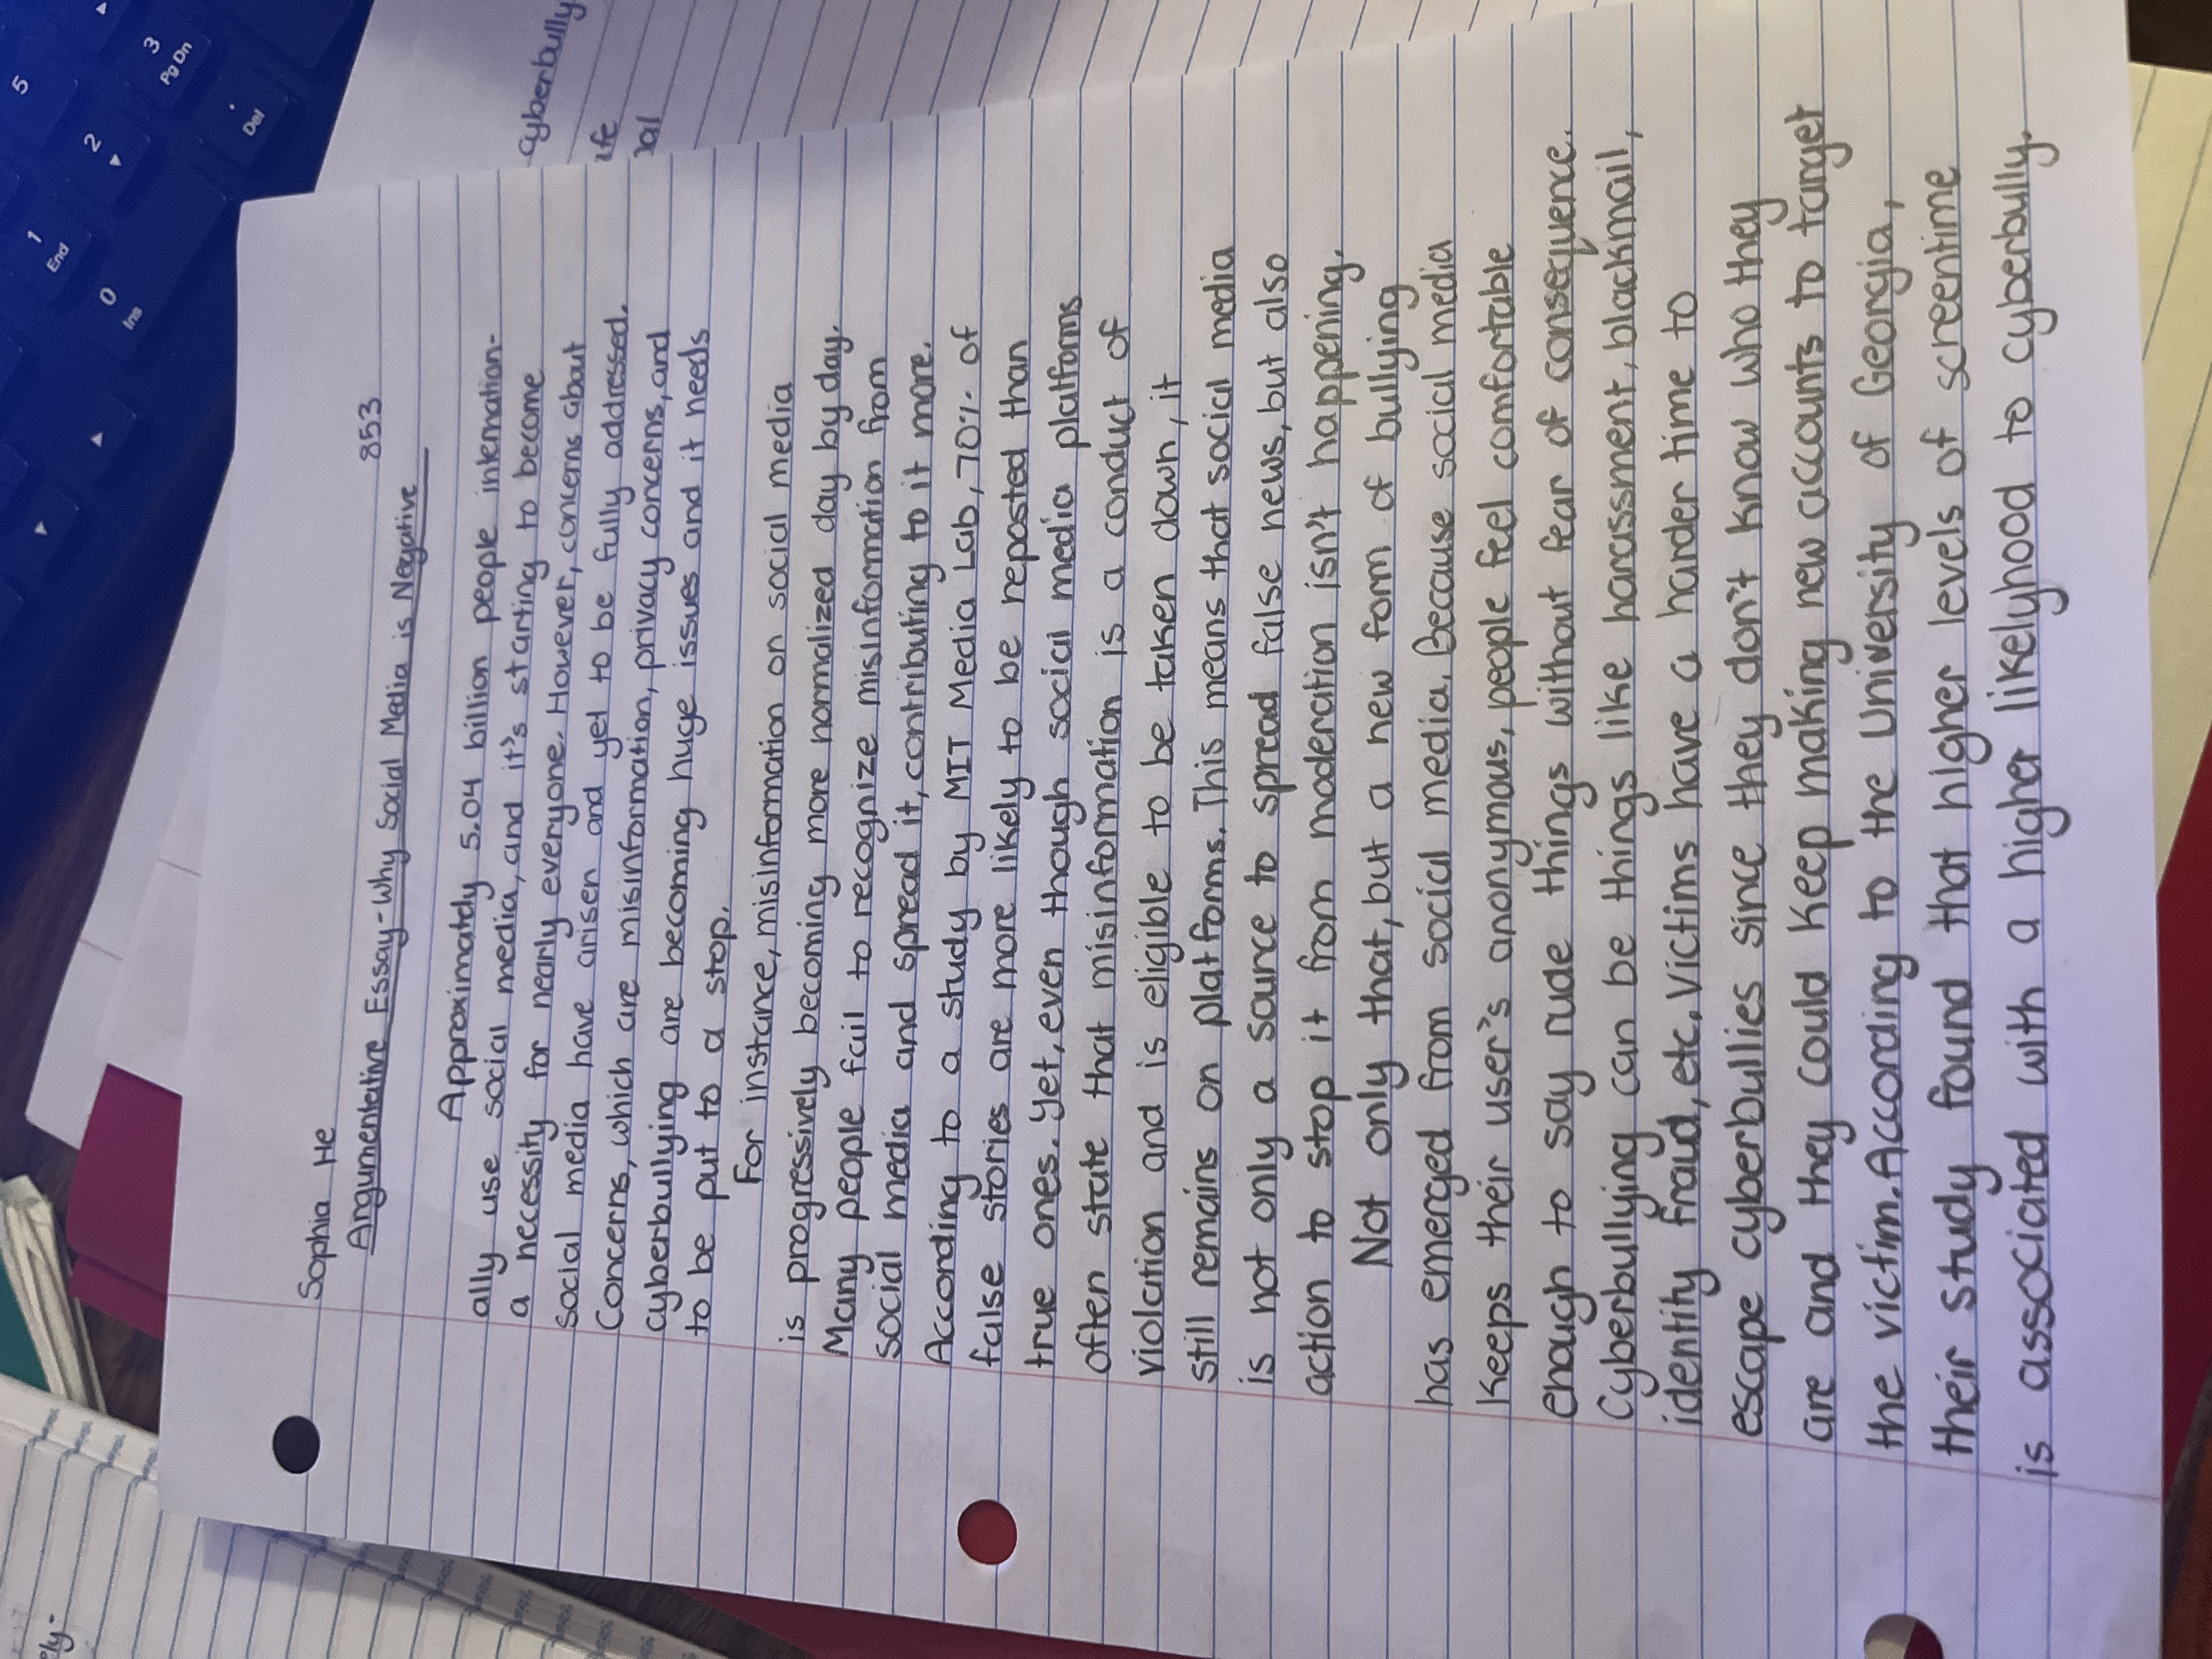 Sophia He
853
Argumentative Essay-Why Social Media is Negative
Approximately 5.04 billion people internation-
ally use social media, and it's starting to become
a necessity for nearly everyone. However, concerns about
social media have arisen and yet to be fully addressed.
Concerns, which are misinformation, privacy concerns, and
cyberbullying are becoming huge issues and it needs
to be put to a stop.
For instance, misinformation on social media
is progressively becoming more normalized day by day.
Many people fail to recognize misinformation from
social media and spread it, contributing to it more.
According to a study by MIT Media Lab, 70% of
false stories are more likely to be reposted than
true ones. Yet, even though social media platforms
often state that misinformation is a conduct of
violation and is eligible to be taken down, it
still remains on platforms. This means that social media
is not only a source to spread false news, but also
action to stop it from moderation isn't happening.
Not only that, but a new form of bullying
has emerged from social media. Because social media
keeps their user's anonymous, people feel comfortable
enough to say rude things without fear of consequence.
Cyberbullying can be things like harassment, blackmail,
identity fraud, etc. Victims have a harder time to
escape cyberbullies since they don't know who they
are and they could keep making new accounts to target
the victim. According to the University of Georgia,
their study found that higher levels of screentime
is associated with a higher likelyhood to cyberbully.
cyberbully
ife
5
3
Pg Dn
.
Del
2
1
End
0
Ins